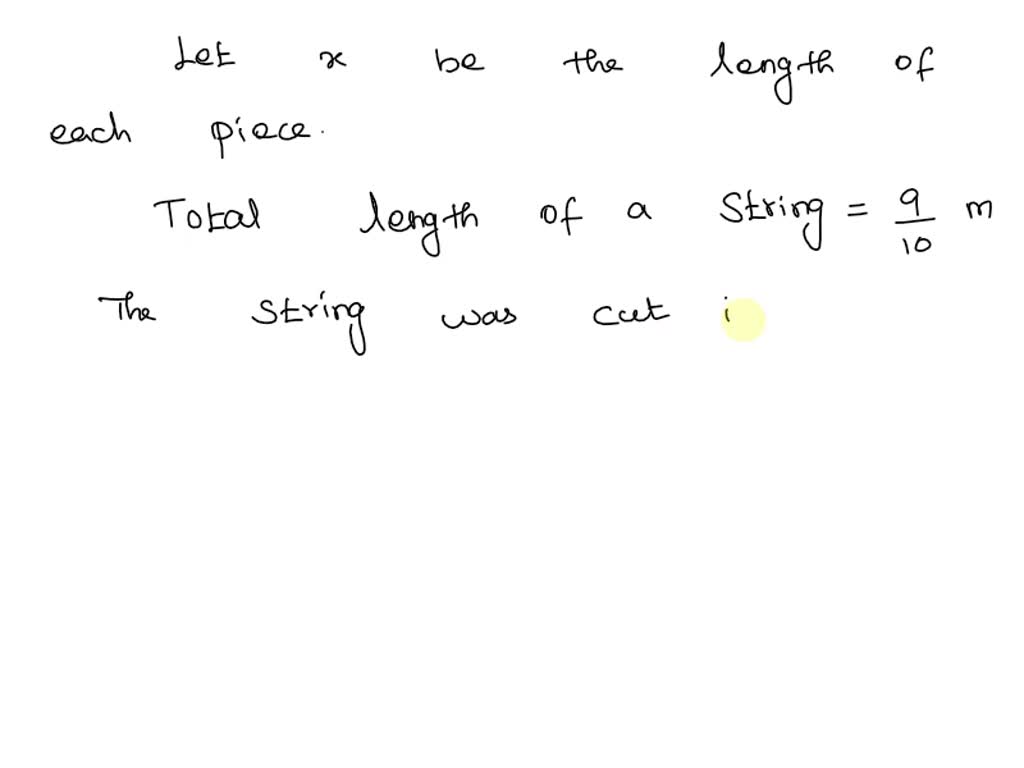 Let x be the length of
each piece.
Total length of a string = 9/10 m
The string was cut i